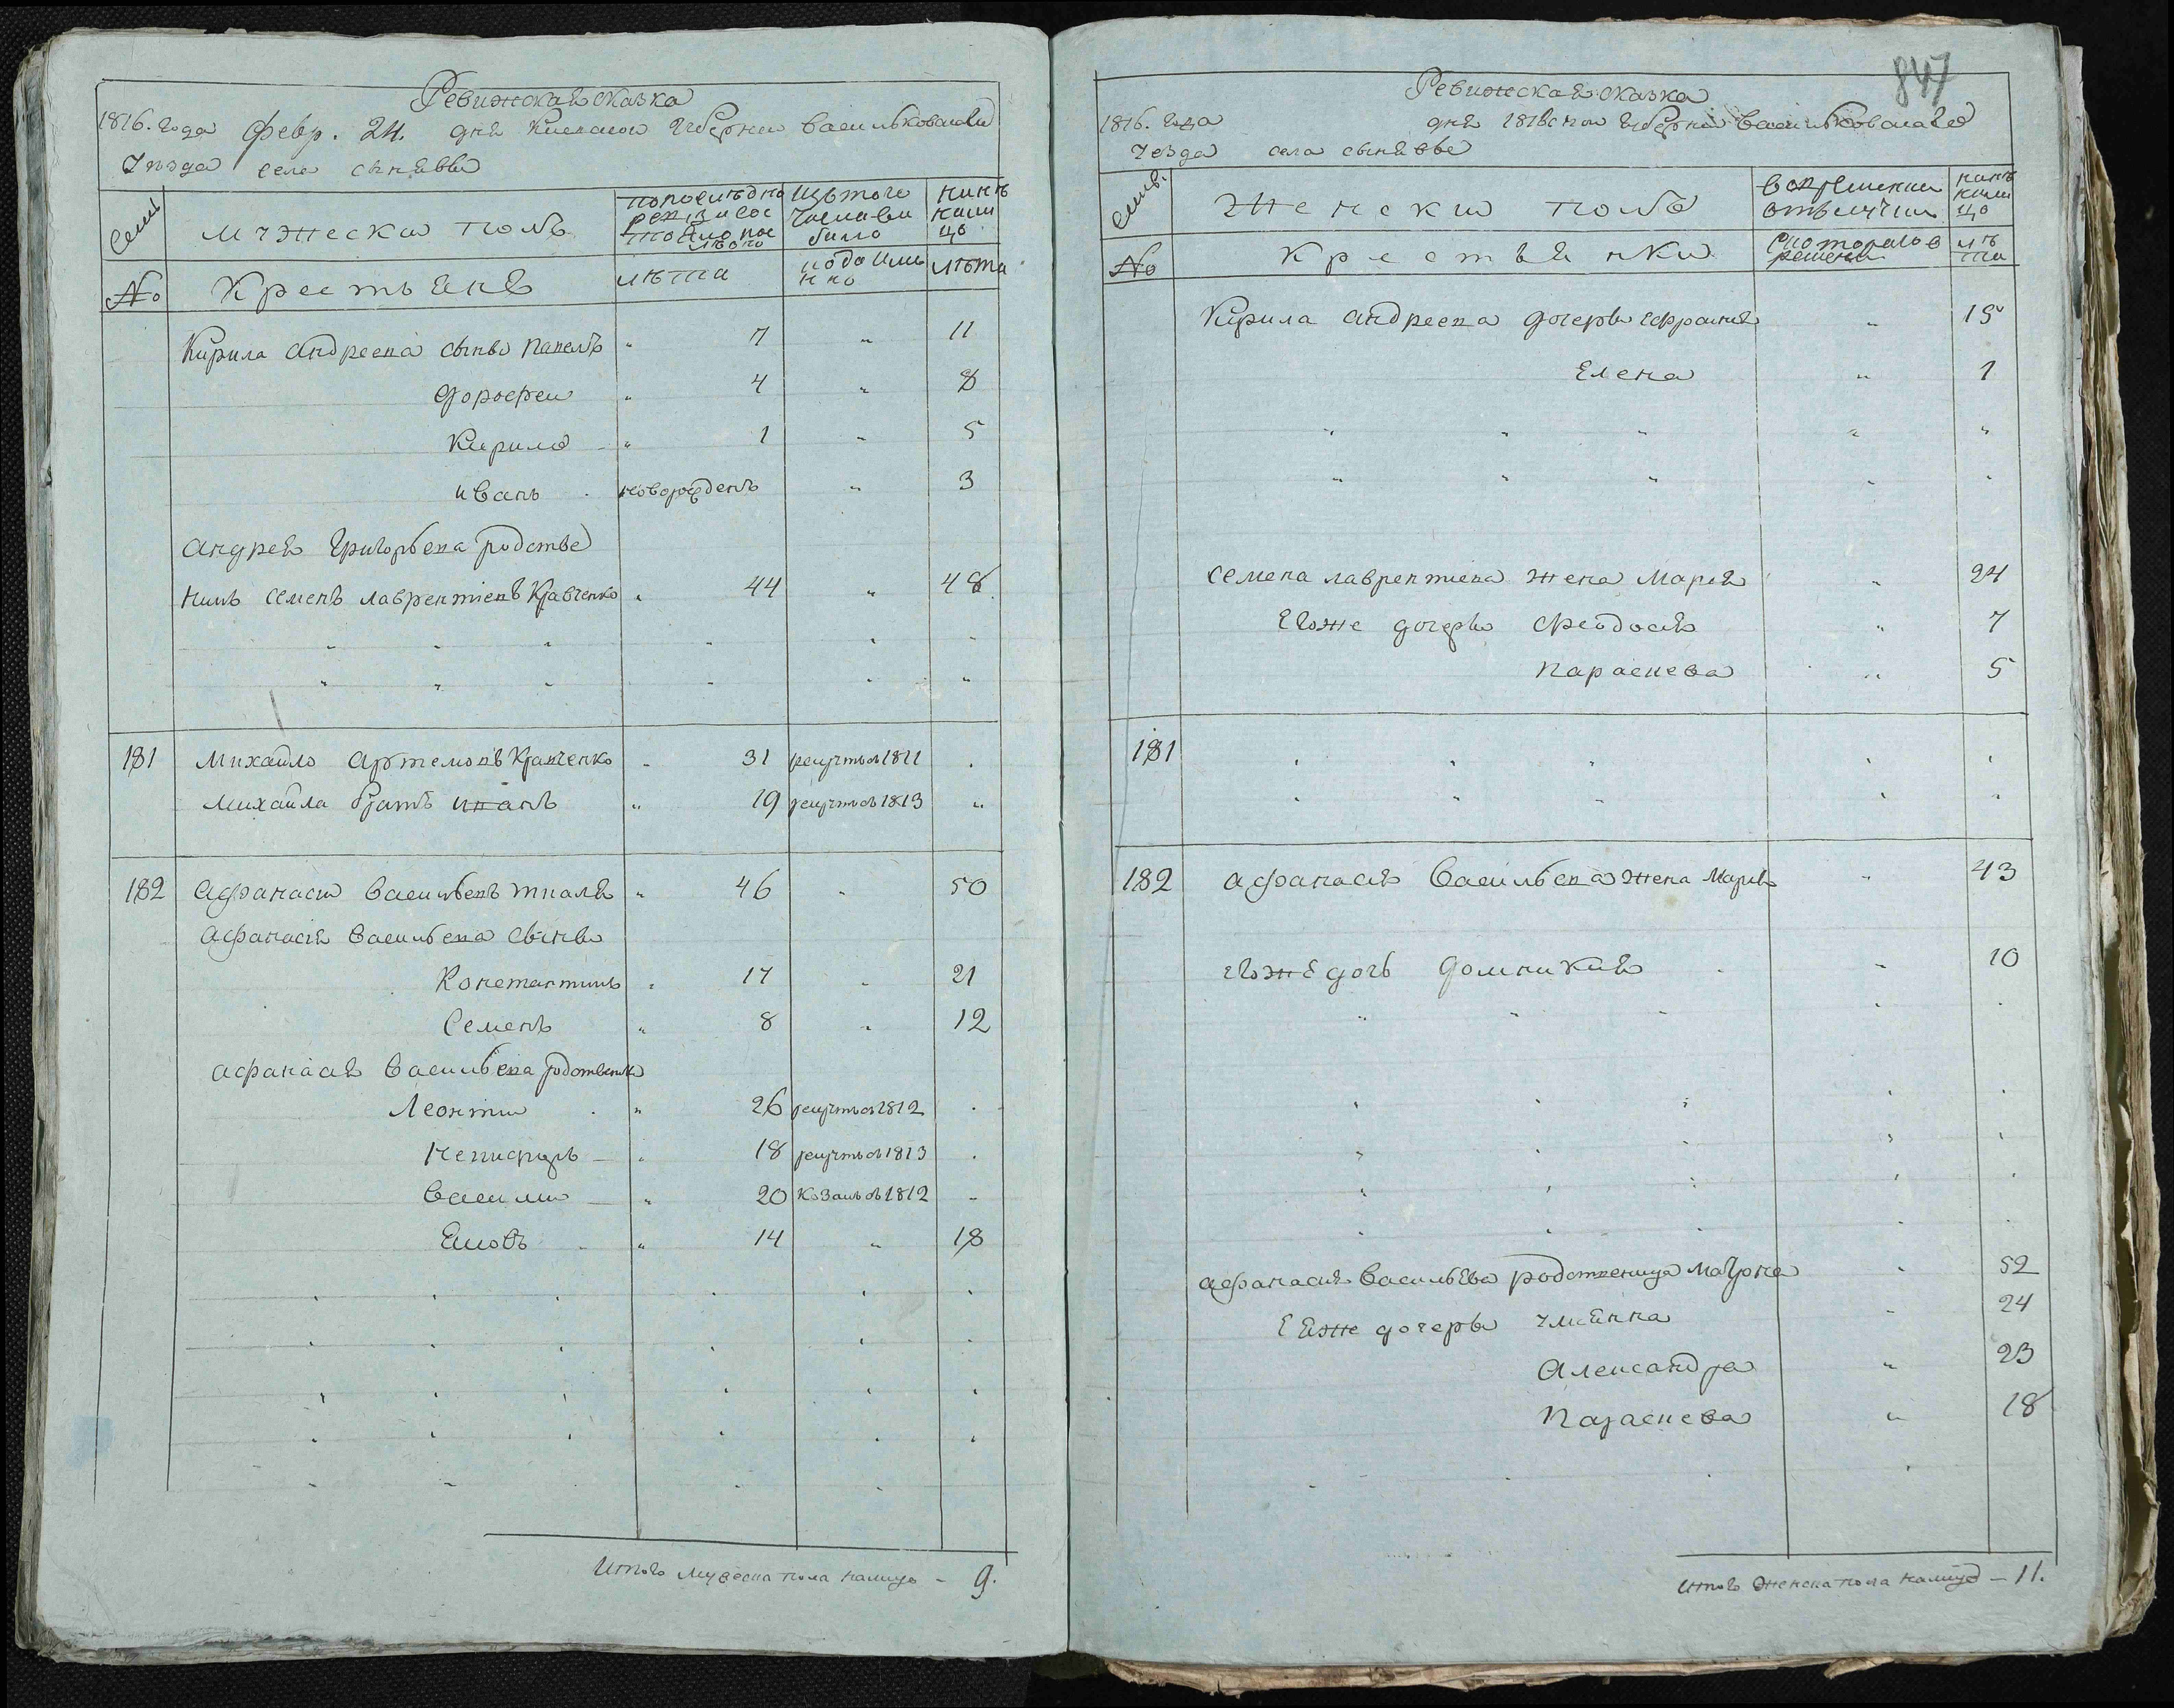 Ревижская сказка
1816. года февр. 24. дня Киевской губернии васильковскаго
уезда села сынявы
семьи
мужеска полъ
по последно ревизи состояло после того
изъ того числа выбыло
нине налицо
№
Крестьяне
лета
лета
Кирила андреева сыны павелъ " 7 " 11
дорофеи " 4 " 8
Кирило " 1 " 5
иванъ новорожденъ " 3
андрея григорьева родстве
никъ семенъ лаврентиевъ Кравченко " 44 " 48
181 михайло артемовъ Кравченко " 31 рекрутъ въ 1811
михайла братъ иванъ " 19 рекрутъ въ 1813 "
182 афанаси васильевъ 46 " 50
афанасия васильева сыны
Константинъ " 17 " 21
Семенъ " 8 " 12
афанасия васильева родственики
Леонти " 26 рекрутъ въ 1812
никифоръ " 18 рекрутъ въ 1813
васили " 20 козакъ въ 1812
14 " 18
Итого мужеска пола налицо – 9.
847
Ревижская сказка
1816. года дня киевской губернии васильковскаго
уезда села сынявы
семьи.
женски полъ
во временной отлучки
нине налицо
№
крестьянки
лета
Кирила андреева дочеры ефросиния " 15
Елена " 1
семена лаврентиева жена Мария " 24
Егоже дочеры феодосия " 7
параскева " 5
181
182 афанасия васильева жена Мария " 43
егоже дочь домникия " 10
афанасия васильева родственица матрона " 52
Еяже дочеры улиянна " 24
Александра " 23
Параскева " 18
итого женска пола налицо – 11.